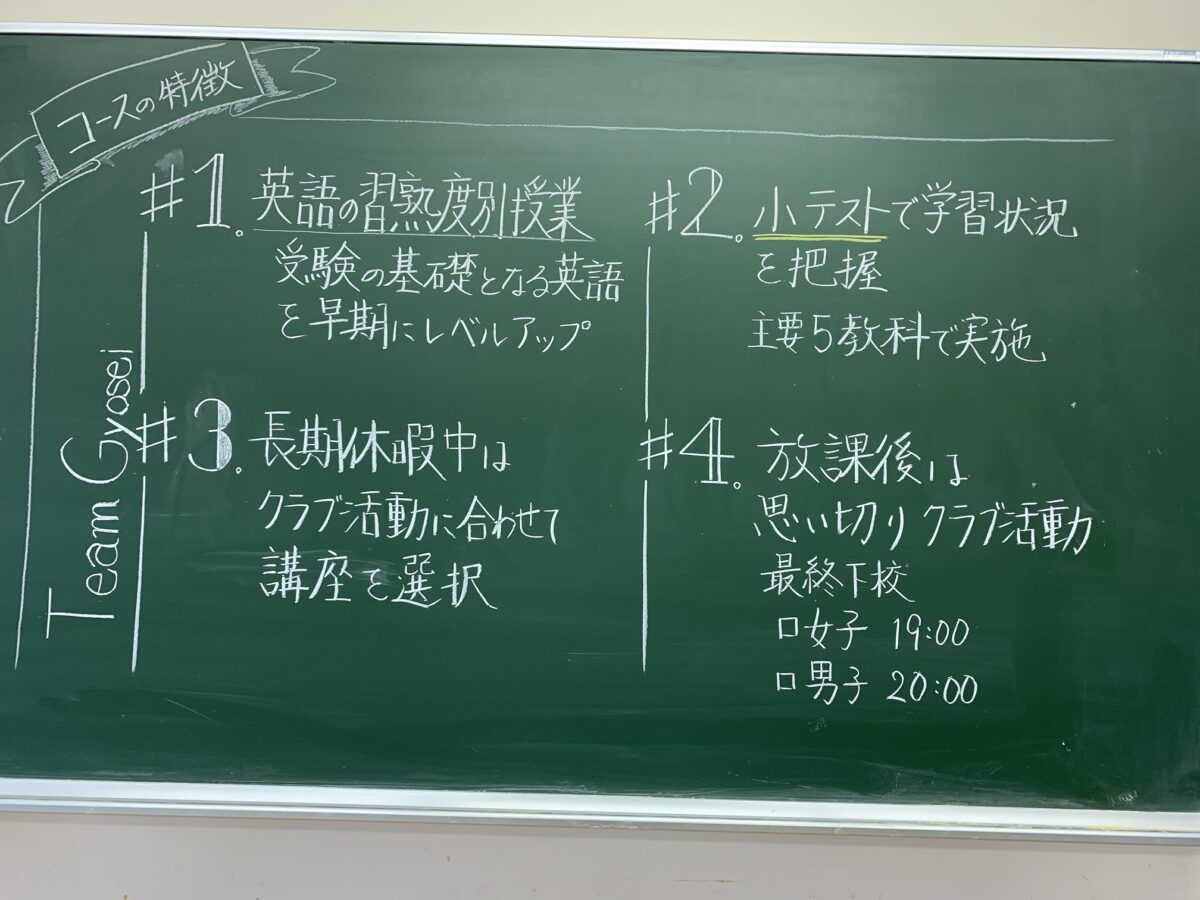 コースの特徴
Team Gyosei
#1. 英語の習熟度別授業
受験の基礎となる英語
を早期にレベルアップ
#2. 小テストで学習状況
を把握
主要5教科で実施
#3. 長期休暇中は
クラブ活動に合わせて
講座を選択
#4. 放課後は
思い切りクラブ活動
最終下校
□女子 19:00
□男子 20:00